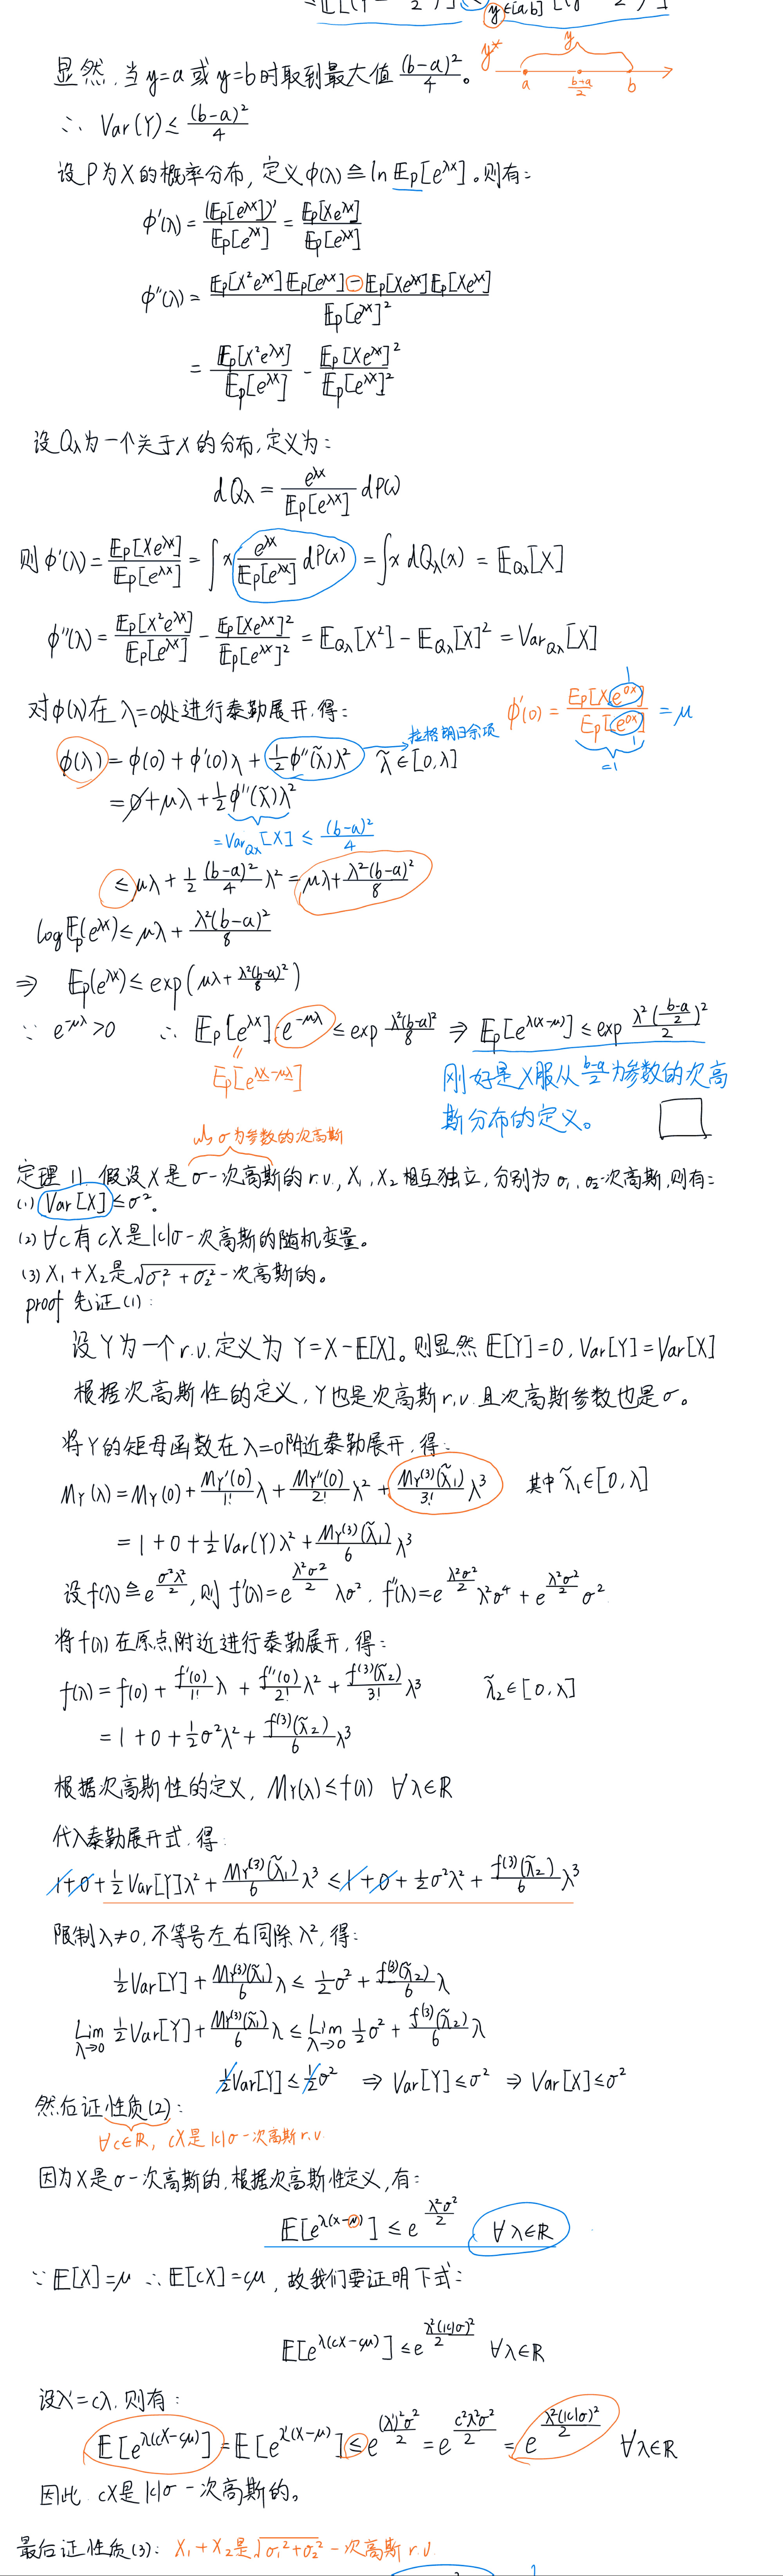 y∈[a,b]
显然,当y=a 或 y=b时取到最大值 (b-a)²/4。
y* y a (b+a)/2 b
∴ Var(Y)≤ (b-a)²/4
设P为X的概率分布,定义φ(λ)≙ln 𝔼p[e^{λx}]。则有:
φ'(λ) = (𝔼p[e^{λx}])'/𝔼p[e^{λx}] = 𝔼p[Xe^{λx}]/𝔼p[e^{λx}]
φ''(λ) = (𝔼p[X²e^{λx}]𝔼p[e^{λx}] - 𝔼p[Xe^{λx}]𝔼p[Xe^{λx}])/𝔼p[e^{λx}]²
= 𝔼p[X²e^{λx}]/𝔼p[e^{λx}] - 𝔼p[Xe^{λx}]²/𝔼p[e^{λx}]²
设Qλ为一个关于X的分布,定义为:
dQλ = e^{λx}/𝔼p[e^{λx}] dP(x)
则 φ'(λ) = 𝔼p[Xe^{λx}]/𝔼p[e^{λx}] = ∫x e^{λx}/𝔼p[e^{λx}] dP(x) = ∫x dQλ(x) = 𝔼Qλ[X]
φ''(λ) = 𝔼p[X²e^{λx}]/𝔼p[e^{λx}] - 𝔼p[Xe^{λx}]²/𝔼p[e^{λx}]² = 𝔼Qλ[X²] - 𝔼Qλ[X]² = VarQλ[X]
对φ(λ)在λ=0处进行泰勒展开,得:
φ'(0) = 𝔼p[Xe^{0x}]/𝔼p[e^{0x}] = μ
1
1
=1
拉格朗日余项
φ(λ) = φ(0) + φ'(0)λ + ½φ''(λ̃)λ² λ̃∈[0,λ]
= 0 + μλ + ½φ''(λ̃)λ²
=VarQλ[X] ≤ (b-a)²/4
≤ μλ + ½ (b-a)²/4 λ² = μλ + λ²(b-a)²/8
log𝔼p(e^{λx}) ≤ μλ + λ²(b-a)²/8
⇒ 𝔼p(e^{λx}) ≤ exp(μλ + λ²(b-a)²/8)
∵ e^{-μλ}>0 ∴ 𝔼p[e^{λx}]·e^{-μλ} ≤ exp λ²(b-a)²/8 ⇒ 𝔼p[e^{λ(x-μ)}] ≤ exp λ²((b-a)/2)²/2
=
𝔼p[e^{λx-μλ}]
刚好是X服从 (b-a)/2 为参数的次高
斯分布的定义。 □
以σ为参数的次高斯
定理 11 假设X是σ-次高斯的r.v., X₁, X₂相互独立,分别为σ₁, σ₂-次高斯,则有:
(1) Var[X] ≤ σ²。
(2) ∀c 有 cX是|c|σ-次高斯的随机变量。
(3) X₁+X₂是√(σ₁²+σ₂²)-次高斯的。
proof 先证(1):
设Y为一个r.v.定义为 Y=X-𝔼[X]。则显然 𝔼[Y]=0, Var[Y]=Var[X]
根据次高斯性的定义,Y也是次高斯r.v. 且次高斯参数也是σ。
将Y的矩母函数在λ=0附近泰勒展开,得:
M_Y(λ) = M_Y(0) + M_Y'(0)/1! λ + M_Y''(0)/2! λ² + M_Y^{(3)}(λ̃₁)/3! λ³ 其中 λ̃₁∈[0,λ]
= 1 + 0 + ½Var(Y)λ² + M_Y^{(3)}(λ̃₁)/6 λ³
设f(λ)≙e^{σ²λ²/2},则 f'(λ)=e^{λ²σ²/2} λσ², f''(λ)=e^{λ²σ²/2} λ²σ⁴ + e^{λ²σ²/2} σ²
将f(λ)在原点附近进行泰勒展开,得:
f(λ) = f(0) + f'(0)/1! λ + f''(0)/2! λ² + f^{(3)}(λ̃₂)/3! λ³ λ̃₂∈[0,λ]
= 1 + 0 + ½σ²λ² + f^{(3)}(λ̃₂)/6 λ³
根据次高斯性的定义, M_Y(λ) ≤ f(λ) ∀λ∈ℝ
代入泰勒展开式,得:
1+0+½Var[Y]λ² + M_Y^{(3)}(λ̃₁)/6 λ³ ≤ 1+0+½σ²λ² + f^{(3)}(λ̃₂)/6 λ³
限制λ≠0,不等号左右同除λ²,得:
½Var[Y] + M_Y^{(3)}(λ̃₁)/6 λ ≤ ½σ² + f^{(3)}(λ̃₂)/6 λ
Lim_{λ→0} ½Var[Y] + M_Y^{(3)}(λ̃₁)/6 λ ≤ Lim_{λ→0} ½σ² + f^{(3)}(λ̃₂)/6 λ
½Var[Y] ≤ ½σ² ⇒ Var[Y] ≤ σ² ⇒ Var[X] ≤ σ²
然后证性质(2):
∀c∈ℝ, cX是|c|σ-次高斯r.v.
因为X是σ-次高斯的,根据次高斯性定义,有:
𝔼[e^{λ(x-μ)}] ≤ e^{λ²σ²/2} ∀λ∈ℝ
∵ 𝔼[X]=μ ∴ 𝔼[cX]=cμ,故我们要证明下式:
𝔼[e^{λ(cX-cμ)}] ≤ e^{λ²(|c|σ)²/2} ∀λ∈ℝ
设λ'=cλ,则有:
𝔼[e^{λ(cX-cμ)}] = 𝔼[e^{λ'(X-μ)}] ≤ e^{(λ')²σ²/2} = e^{c²λ²σ²/2} = e^{λ²(|c|σ)²/2} ∀λ∈ℝ
因此 cX是|c|σ-次高斯的。
最后证性质(3): X₁+X₂是√(σ₁²+σ₂²)-次高斯r.v.